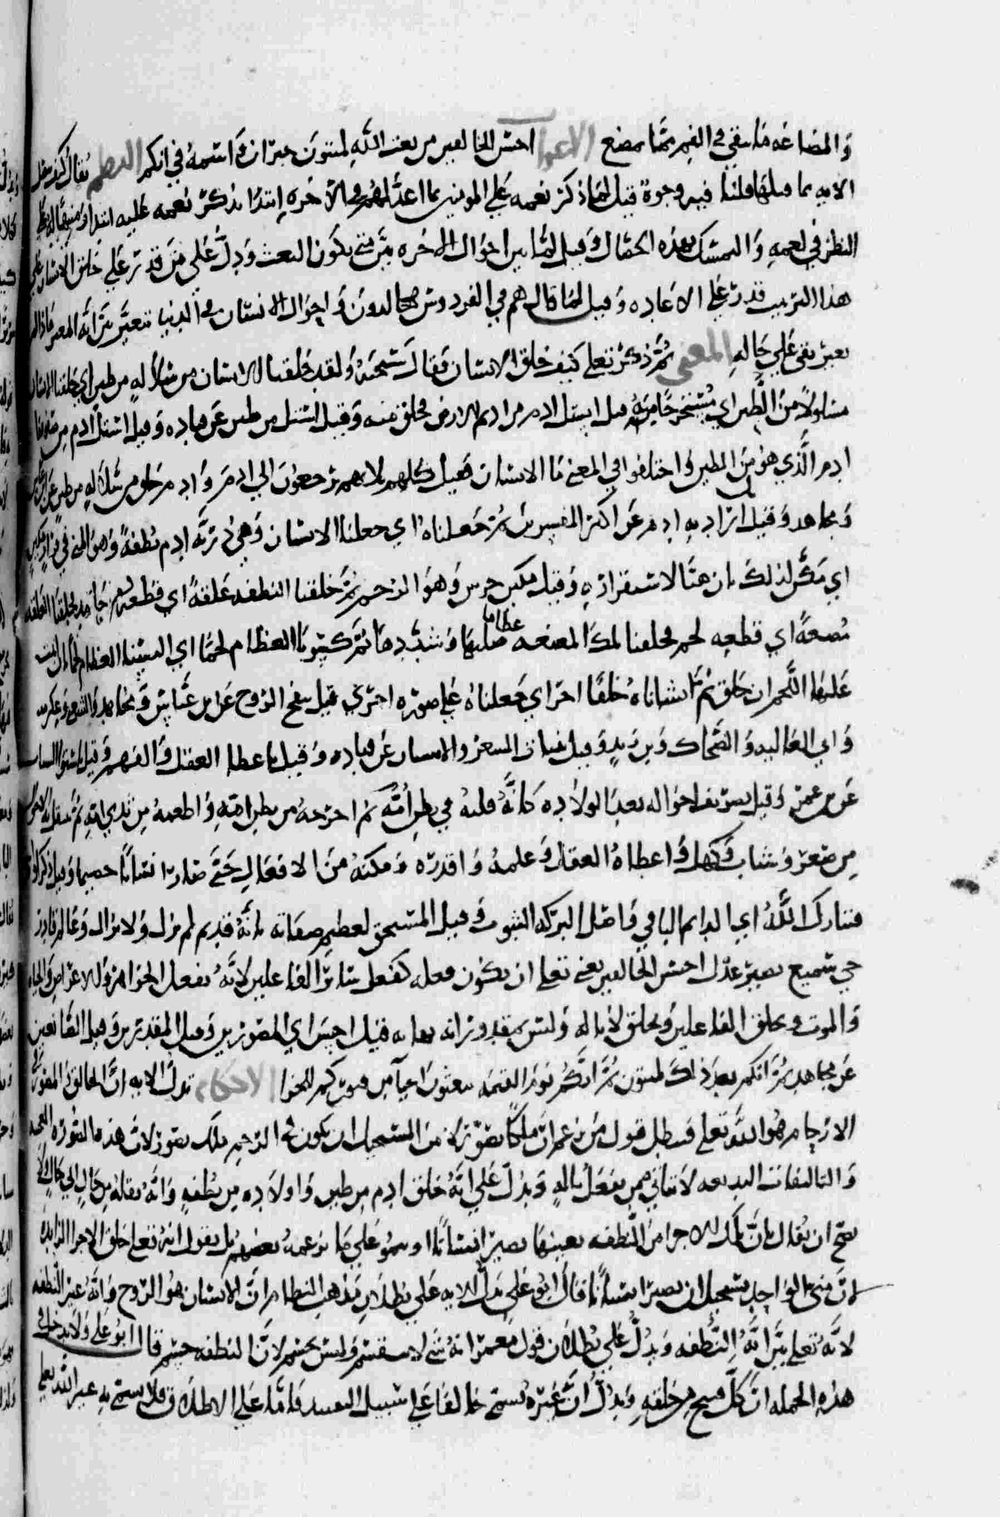 والمضاغه ما يبقى في الفم مما يمضغ الاعراب احسن الخالقين من نعت الله لميتون خبر ان واسمه في انكم النظم يقال كيف يتصل
الايه بما قبلها قلنا فيه وجوه قيل لما ذكر نعمه على المومنين بما اعد لهم في الاخره ابتدا بذكر نعمه عليه ابتدا
النظر في نعمه والتمسك بهذه الخصال وقيل لما بين احوال الاخره بين متى يكون البعث ودل على من قدر على خلق الانسان على
هذا الترتيب قدر على الاعاده وقيل لما قال هم في الفردوس خالدون واحوال الانسان في الدنيا تتغير بين انه المغير
يبقى على حاله المعنى ثم ذكر تعالى كيف خلق الانسان فقال سبحنه ولقد خلقنا الانسان من سلاله من طين اي خلقنا الانسان
مسلولا من الطين اي مستخرجا منه قيل استل ادم من اديم الارض فخلق منه وقيل استل من طين عن قتاده وقيل استل ادم من
ادم الذي هو من الطين واختلفوا في المعني بالانسان فقيل كلهم لانهم يرجعون الى ادم وادم خلق من سلاله من طين عن
ومجاهد وقيل اراد به ادم عن اكثر المفسرين ثم جعلناه اي جعلنا الانسان وهي ذريه ادم نطفة وهو المني في قرار مكين
اي مكن لذلك بان هيا لاستقراره وقيل مكين حريز وهو الرحم ثم خلقنا النطفه علقة اي قطعه دم جامد فخلقنا العلقه
مضغة اي قطعه لحم فخلقنا تلك المضغه عظاما صلبها وشددها ثم كسونا العظام لحما اي البسنا العظام
عليها اللحم ثم انشاناه خلقا اخر اي جعلناه على صوره اخرى قيل بنفخ الروح عن ابن عباس ومجاهد والشعبي وعكرمه
وابي العاليه والضحاك وابن زيد وقيل نبات الشعر والاسنان عن قتاده وقيل باعطا العقل والفهم وقيل باستوا الشباب
عن ابن عمر وقيل بتصريف احواله بعد الولاده كانه قلبه في بطن امه ثم اخرجه من بطن امه واطعمه من ثدي امه ثم نقله
من صغر وشاب وكهل واعطاه العقل وعلمه واقدره ومكنه من الافعال حتى صار انسانا خصيما وقيل ذكرا او
فتبارك الله اي الدايم الباقي واصل البركه الثبوت وقيل المستحق لعظيم صفاته بانه قديم لم يزل ولا يزال وعالم قادر
حي سميع بصير عدل احسن الخالقين يعني تعالى ان يكون فعله كفعل سائر الفاعلين لانه يفعل الجواهر والاعراض والحياه
والموت ويخلق الفاعلين ويخلق لا باله وليس لمقدوراته نهايه قيل احسن اي المصورين وقيل المقدرين وقيل الصانعين
عن مجاهد ثم انكم بعد ذلك لميتون ثم انكم يوم القيمه تبعثون احيا من قبوركم للجزا الاحكام تدل الايه ان الخالق والمصور في
الارحام هو الله تعلى فبطل قول من زعم ان ملكا يصوره لان من المستحيل ان يكون في الرحم ملك يصور لان هذه الصوره العجيبه
والتاليفات البديعه لا تتاتى ممن يفعل باله ويدل على انه خلق ادم من طين واولاده من نطفه وانه نقله من حال الى حال ولا
يصح ان يقال بان تلك الاجزا من النطفه بعينها تصير انسانا او تنمو على ما يزعمه بعضهم بل يقول انه تعلى خلق الاجزا الزايده
لان مني الواحد يستحيل ان يصير انسانا قال ابو علي تدل الايه على بطلان مذهب النظام ان الانسان هو الروح وانه غير النطفه
لانه تعلى بين انه النطفه ويدل على بطلان قول معمر انه شي لا ينقسم وليس بجسم لان النطفه جسم قال ابو علي ولا يدخل في
هذه الجمله ان كل قبيح من خلقه ويدل ان غيره يسمى خالقا على سبيل التقييد فاما على الاطلاق فلا يسمى به غير الله تعلى